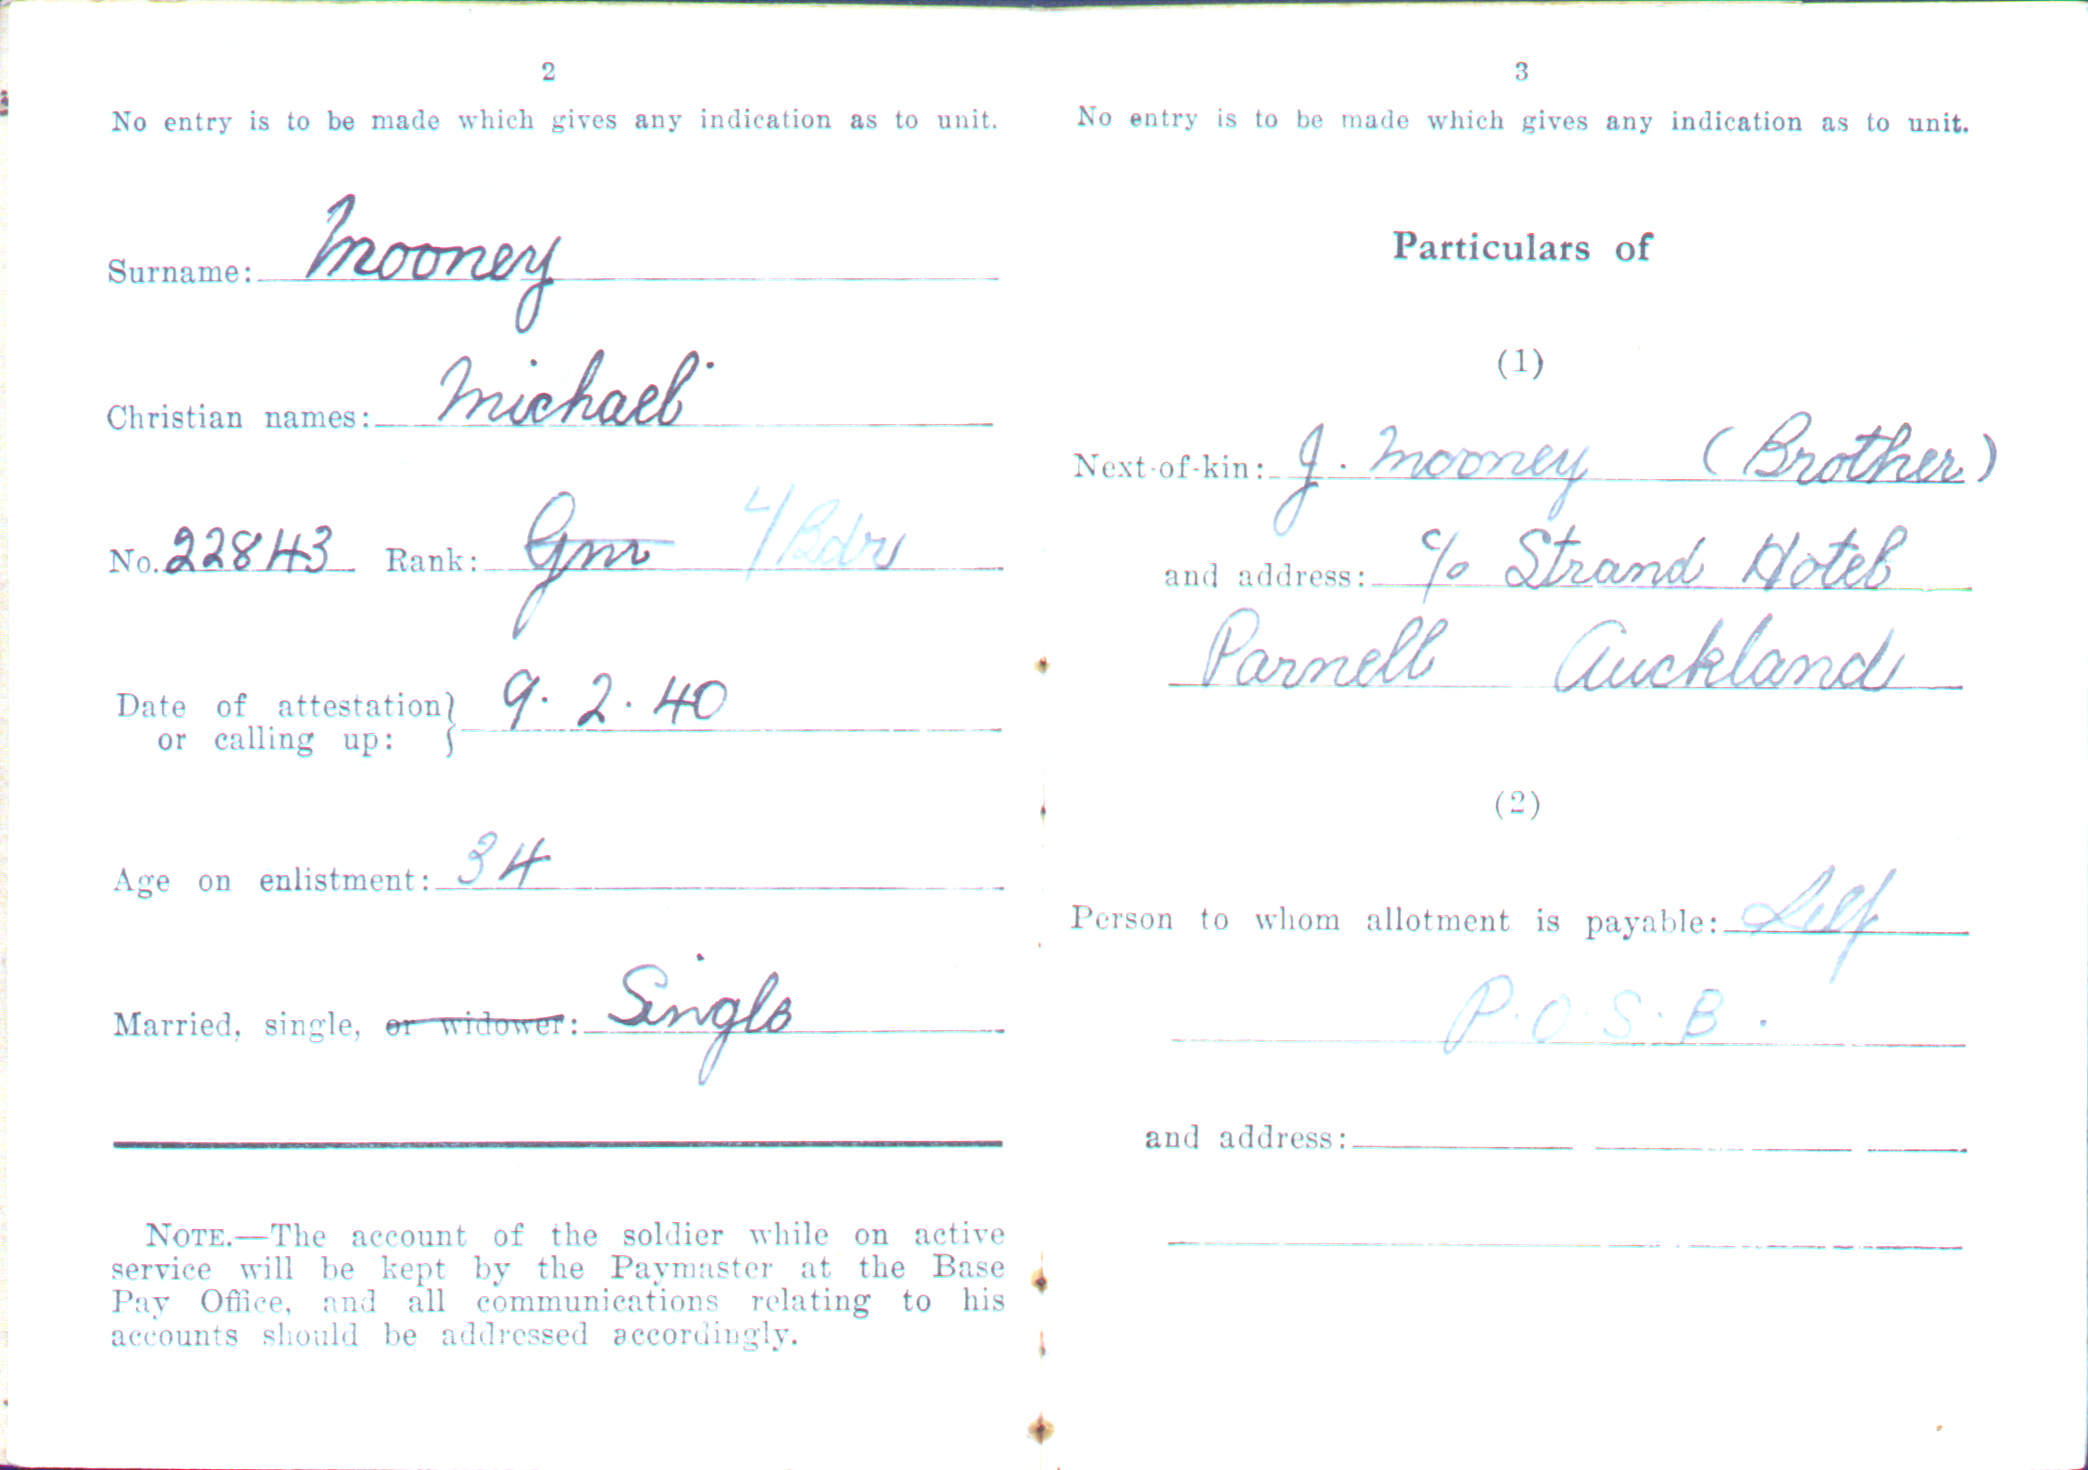 2
No entry is to be made which gives any indication as to unit.
Surname: Mooney
Christian names: Michael
No. 22843 Rank: Gnr L/Bdr
Date of attestation
or calling up: } 9.2.40
Age on enlistment: 34
Married, single, or widower: Single
NOTE.—The account of the soldier while on active
service will be kept by the Paymaster at the Base
Pay Office, and all communications relating to his
accounts should be addressed accordingly.
3
No entry is to be made which gives any indication as to unit.
Particulars of
(1)
Next-of-kin: J. Mooney (Brother)
and address: c/o Strand Hotel
Parnell Auckland
(2)
Person to whom allotment is payable: Self
P.O.S.B.
and address: